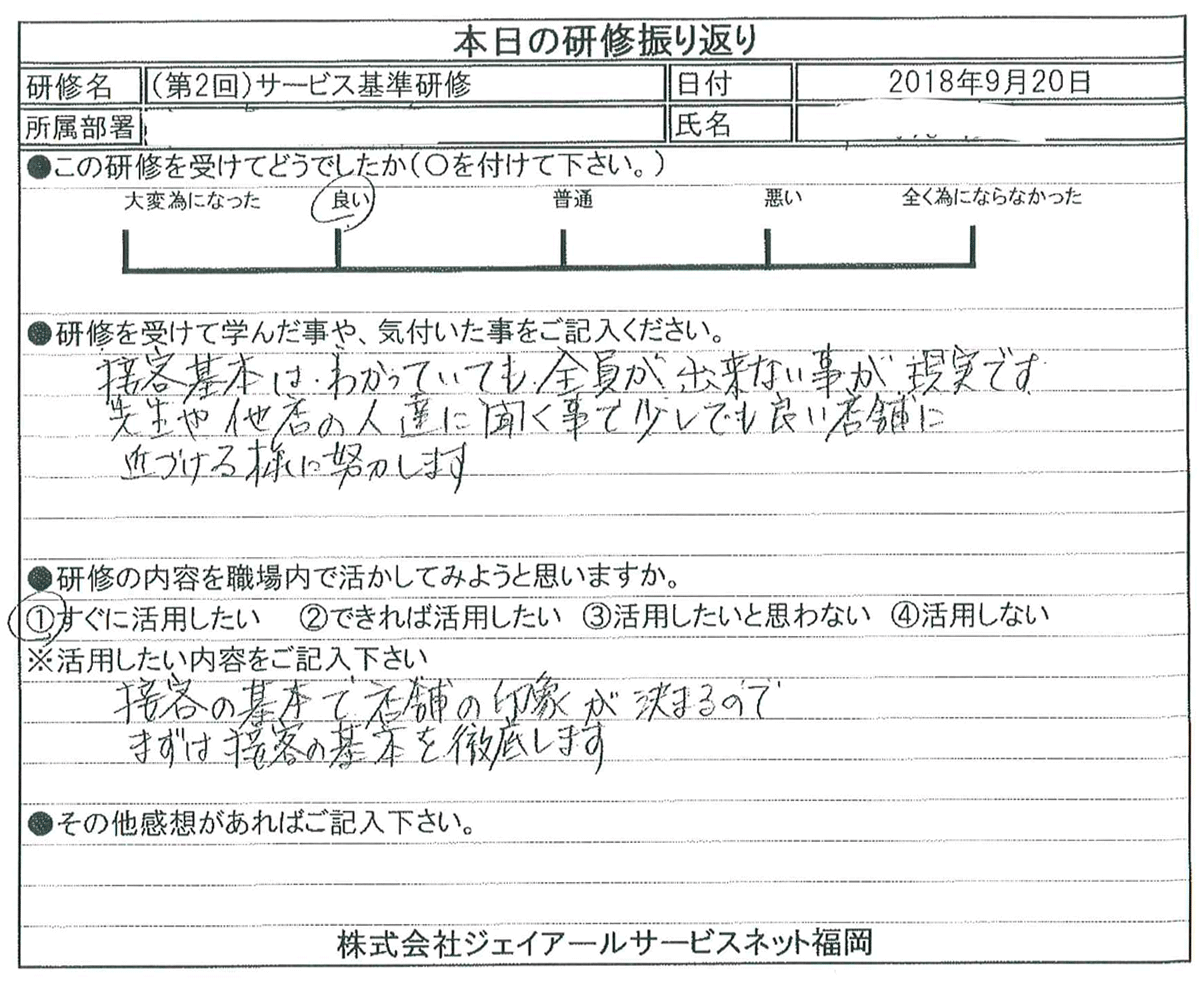 本日の研修振り返り
研修名 (第2回)サービス基準研修 日付 2018年9月20日
所属部署 氏名
●この研修を受けてどうでしたか(〇を付けて下さい。)
大変為になった 良い 普通 悪い 全く為にならなかった
●研修を受けて学んだ事や、気付いた事をご記入ください。
接客基本は、わかっていても、全員が出来ない事が現実です
先生や他店の人達に聞く事で少しでも良い店舗に
近づける様に努力します
●研修の内容を職場内で活かしてみようと思いますか。
①すぐに活用したい ②できれば活用したい ③活用したいと思わない ④活用しない
※活用したい内容をご記入下さい
接客の基本で店舗の印象が決まるので
まずは接客の基本を徹底します
●その他感想があればご記入下さい。
株式会社ジェイアールサービスネット福岡